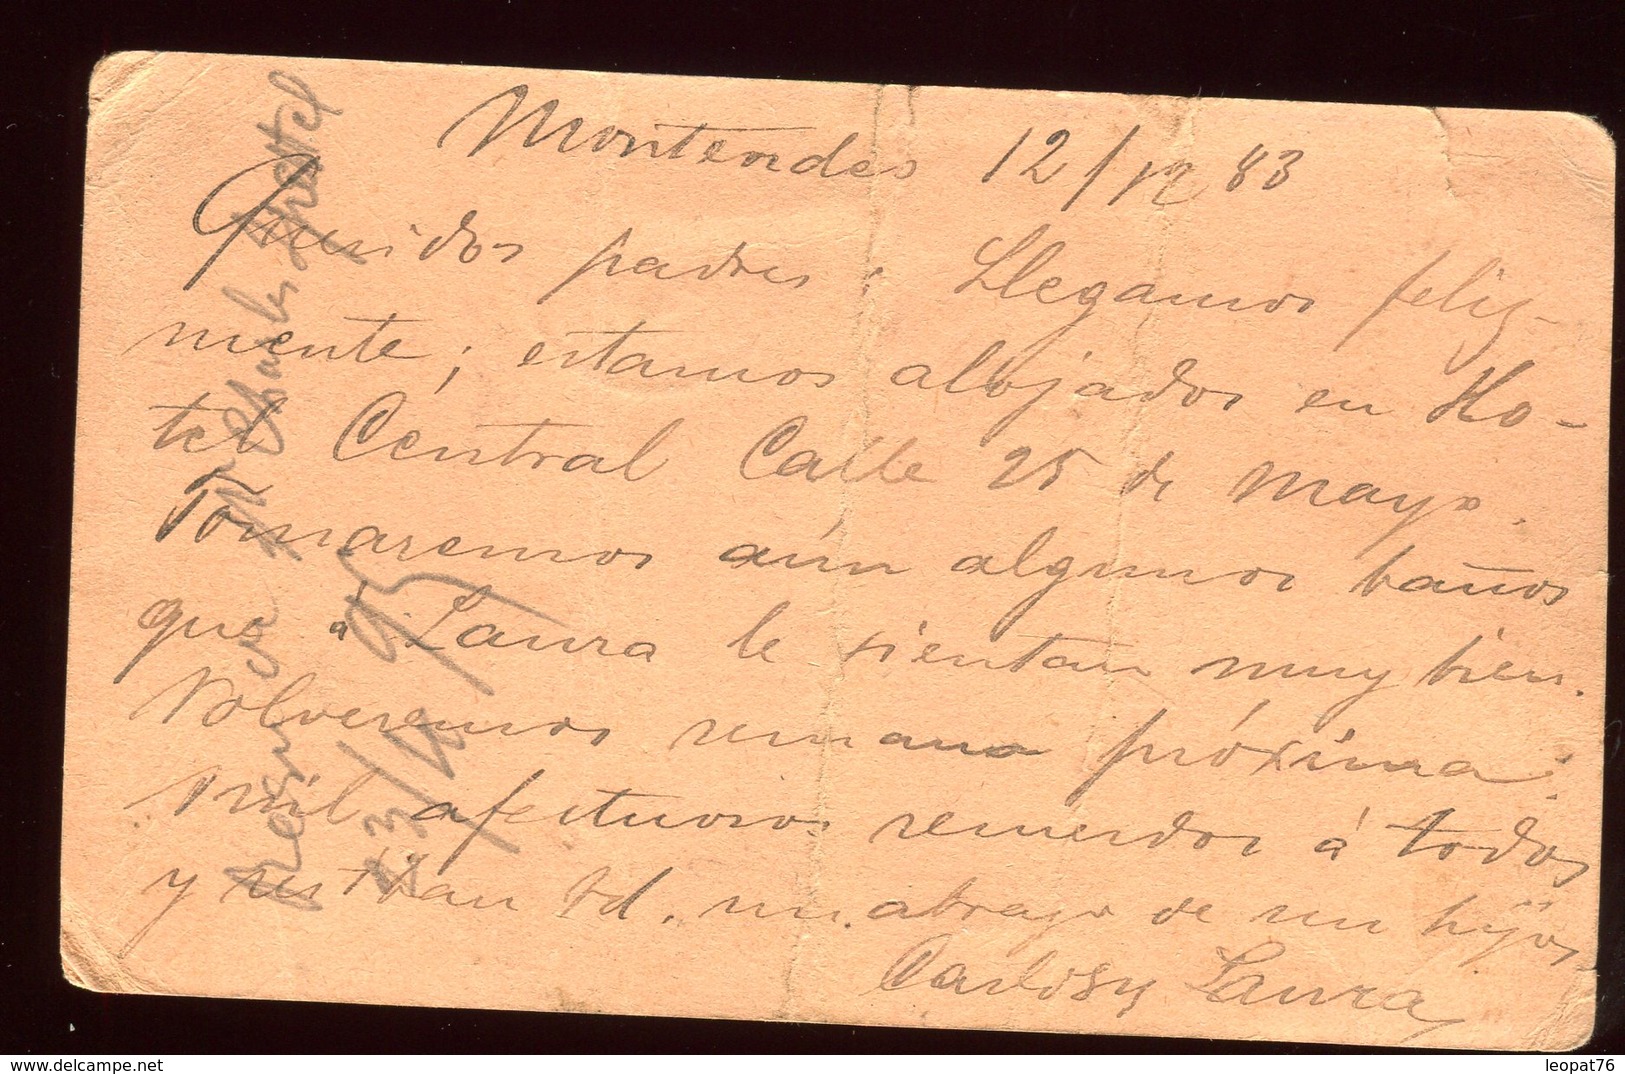 Montevideo 12/12 83
Queridos padres: Llegamos feliz-
mente; estamos alojados en Ho-
tel Central Calle 25 de Mayo.
Tomaremos aún algunos baños
que á Laura le sientan muy bien.
Volveremos semana próxima.
Mil afectuosos recuerdos á todos
y reciban Vd. un abrazo de sus hijos
Carlos y Laura
Reçu de Mr Charles
23/4 95
leopat76